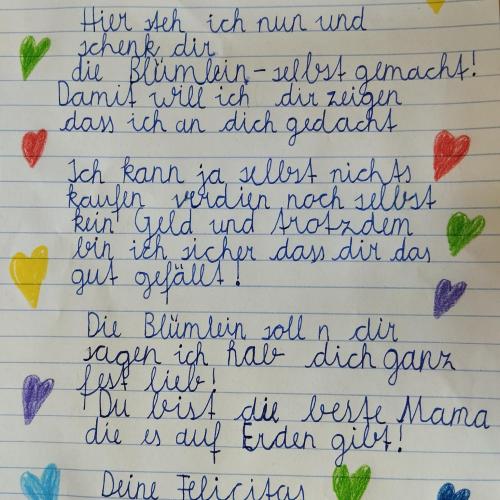 Hier steh ich nun und
schenk dir
die Blümlein - selbst gemacht!
Damit will ich dir zeigen
dass ich an dich gedacht
Ich kann ja selbst nichts
kaufen verdien noch selbst
kein Geld und trotzdem
bin ich sicher dass dir das
gut gefällt!
Die Blümlein soll n dir
sagen ich hab dich ganz
fest lieb!
Du bist die beste Mama
die es auf Erden gibt!
Deine Felicitas